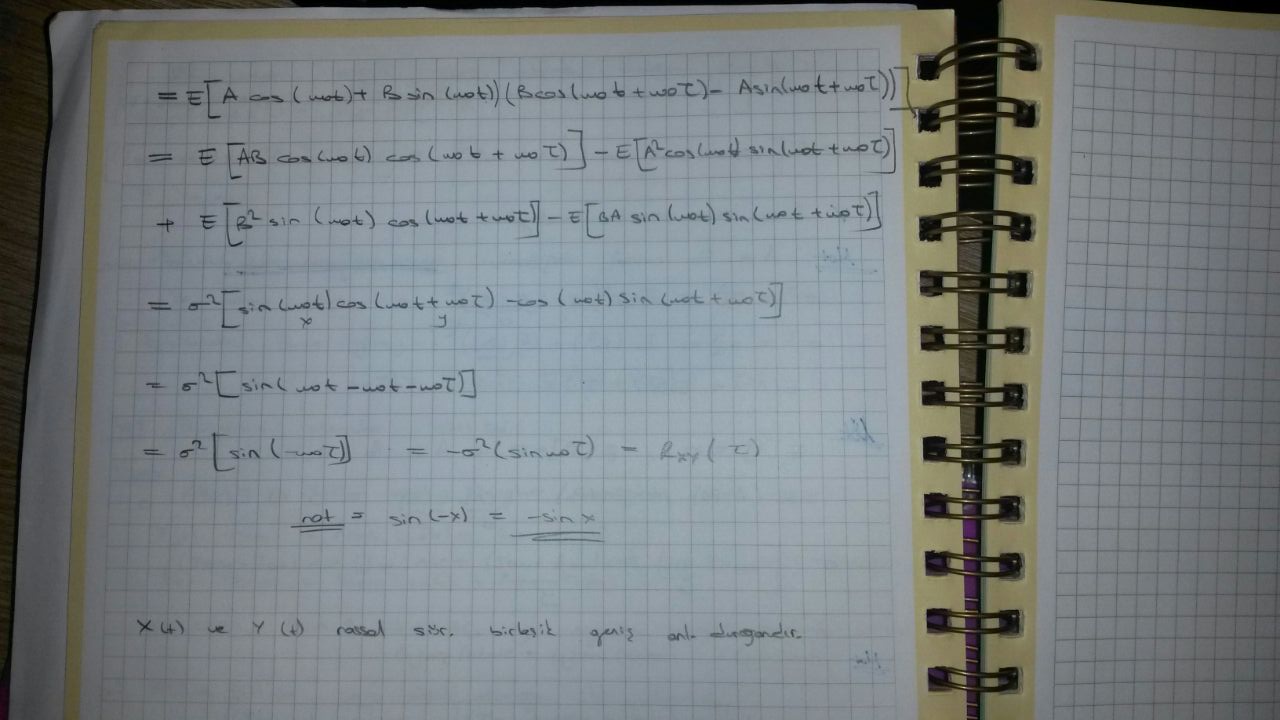 = E[A cos(ω0t) + B sin(ω0t))(Bcos(ω0t + ω0τ) - Asin(ω0t + ω0τ))]
= E[AB cos(ω0t) cos(ω0t + ω0τ)] - E[A²cos(ω0t) sin(ω0t + ω0τ)]
+ E[B² sin(ω0t) cos(ω0t + ω0τ)] - E[BA sin(ω0t) sin(ω0t + ω0τ)]
= σ²[sin(ω0t) cos(ω0t + ω0τ) - cos(ω0t) sin(ω0t + ω0τ)]
x y
= σ²[sin(ω0t - ω0t - ω0τ)]
= σ²[sin(-ω0τ)] = -σ²(sinω0τ) = RXY(τ)
not = sin(-x) = -sinx
X(t) ve Y(t) rassal sür. birleşik geniş anl. durağandır.